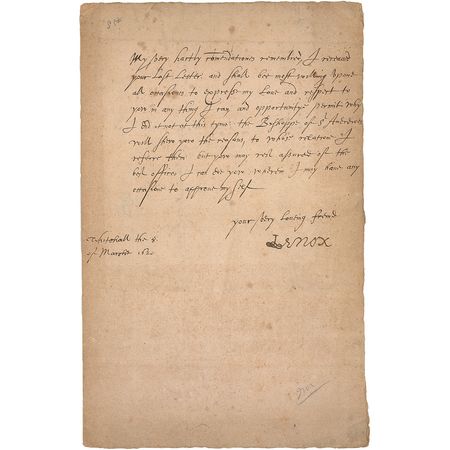 My very hartly comendations remembred, I receaved
your last Letter and shall bee most willing upone
all occasions to express my Love and respect to
yow in any thing I can, and opportunytye permit. why
I did it not at this tyme the Bishoppe of St Andrewes
will shew yow the reason, to whose relatione I
referre them but yow may rest assured of the
best offices I can doe yow wherein I may have any
occasione to approve my self
your very Loving freind
Lenox
Whitehall the 8.
of Marche 1620